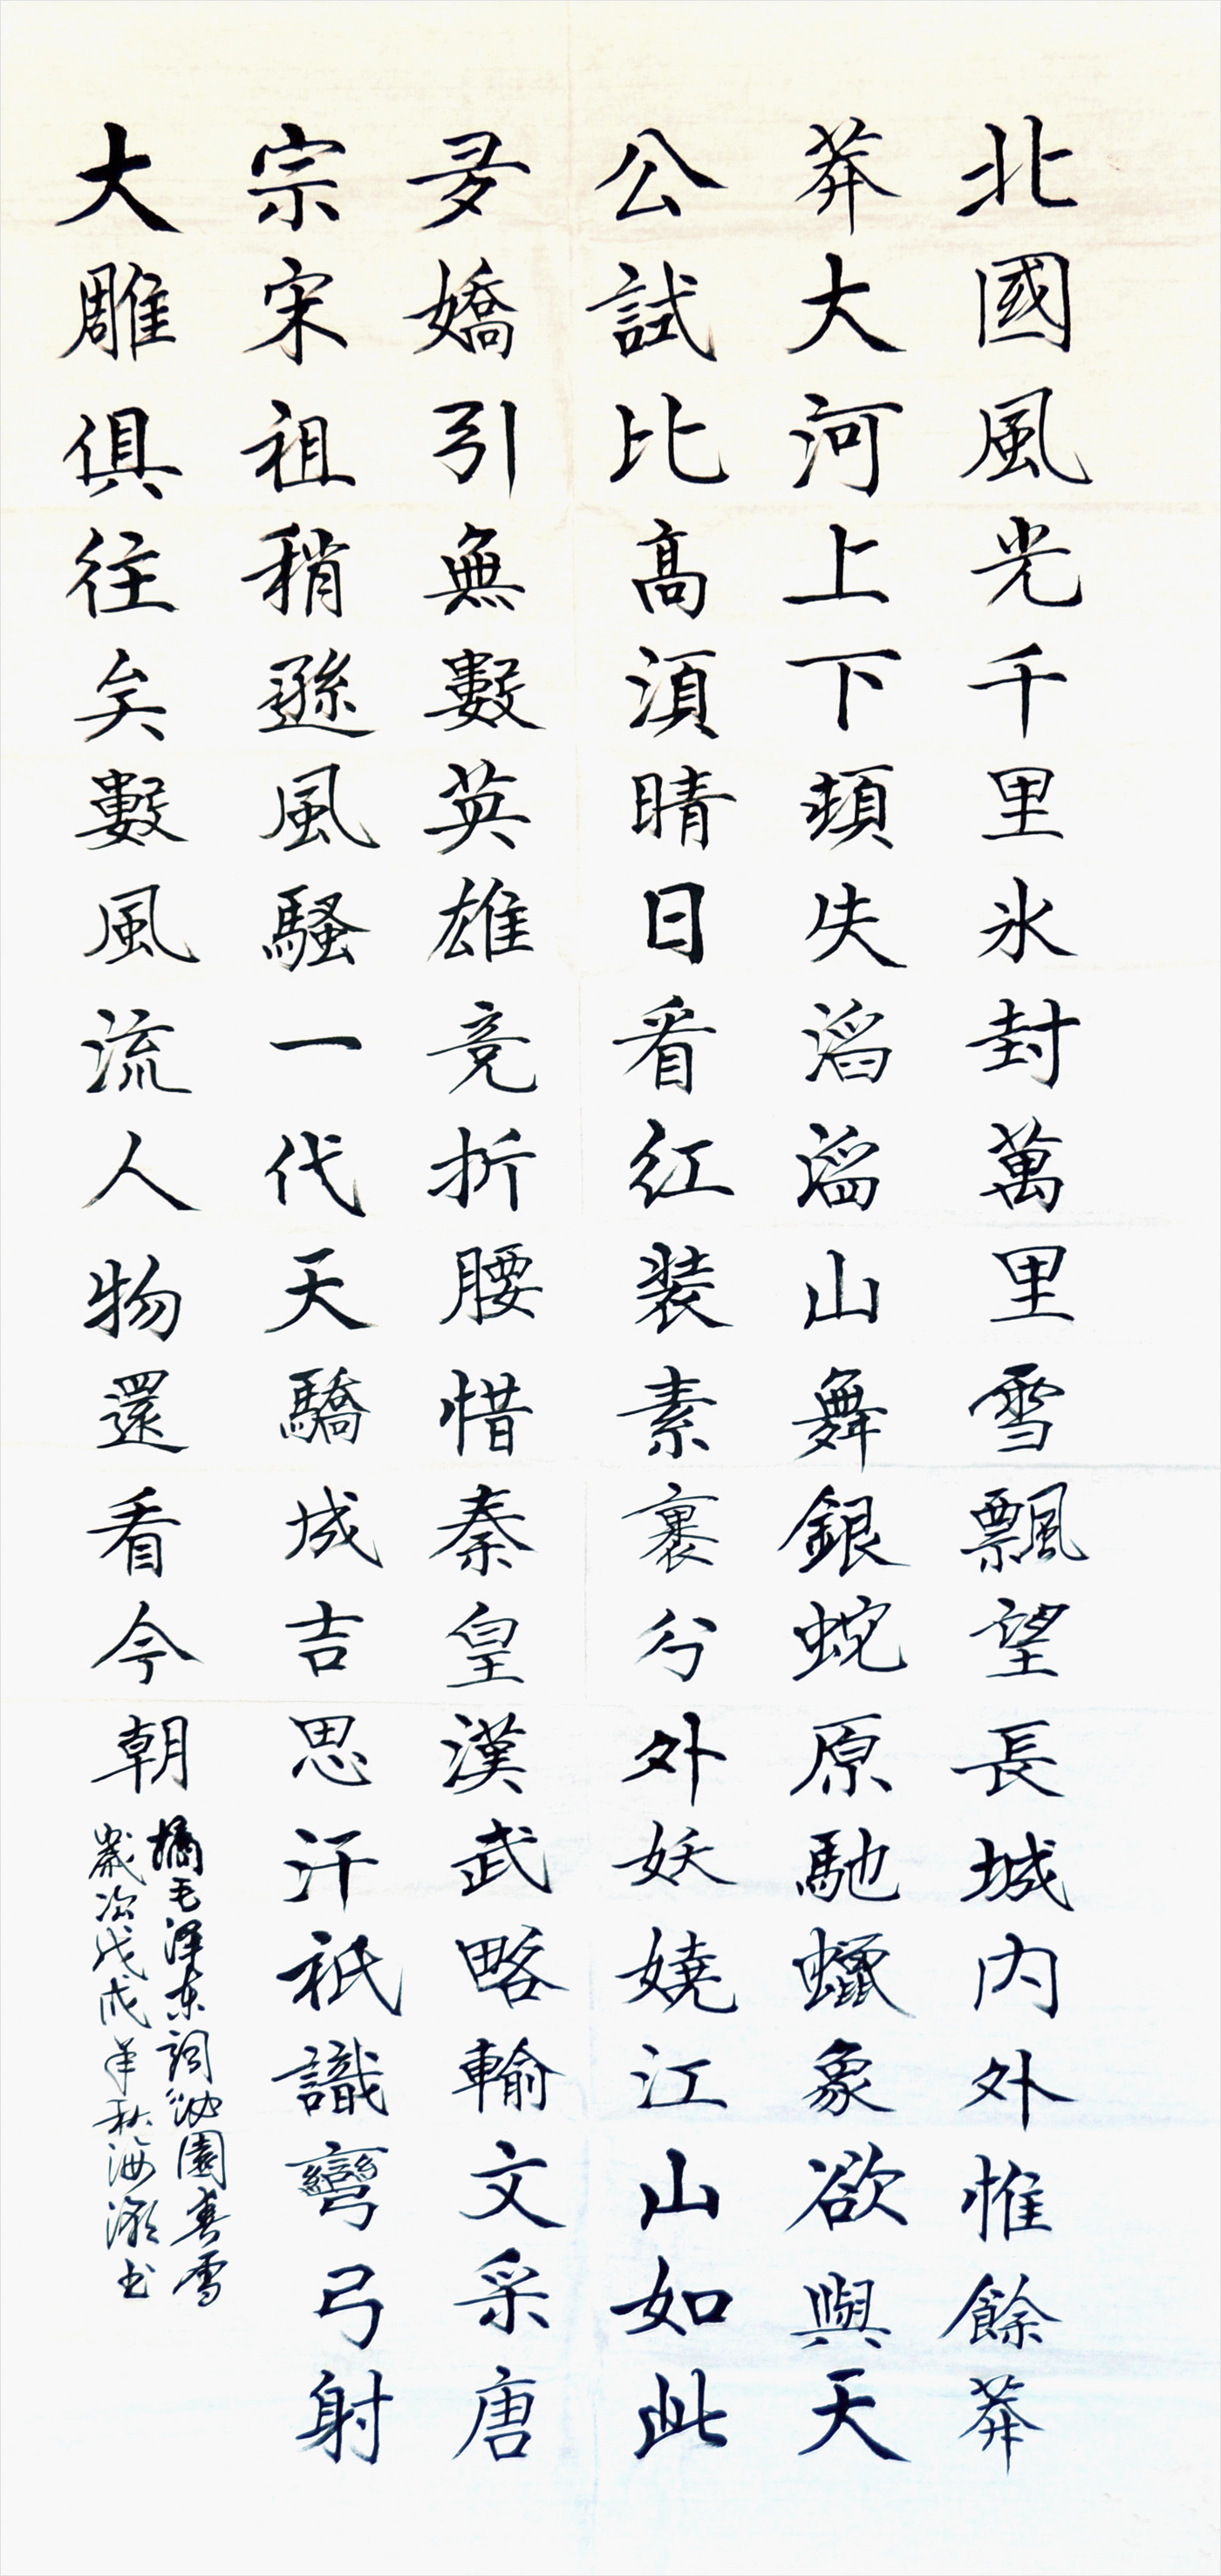 北國風光千里氷封萬里雪飄望長城内外惟餘莽
莽大河上下頓失滔滔山舞銀蛇原馳蠟象欲與天
公試比高須晴日看紅装素裹分外妖嬈江山如此
多嬌引無數英雄竞折腰惜秦皇漢武略輸文采唐
宗宋祖稍遜風騷一代天驕成吉思汗衹識彎弓射
大雕俱往矣數風流人物還看今朝
摘毛泽东詞沁園春雪
歲次戊戌年秋海
书